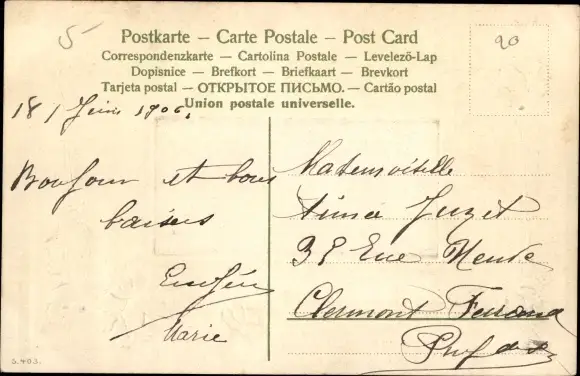 5
20
Postkarte — Carte Postale — Post Card
Correspondenzkarte — Cartolina Postale — Levelező-Lap
Dopisnice — Brefkort — Briefkaart — Brevkort
Tarjeta postal — ОТКРЫТОЕ ПИСЬМО. — Cartão postal
Union postale universelle.
18 / Juin 1906,
Bonjour et bons
baisers
Eugénie
Marie
Mademoiselle
Juzet
Rue
Clermont Ferrand
Puy de
S. 403.